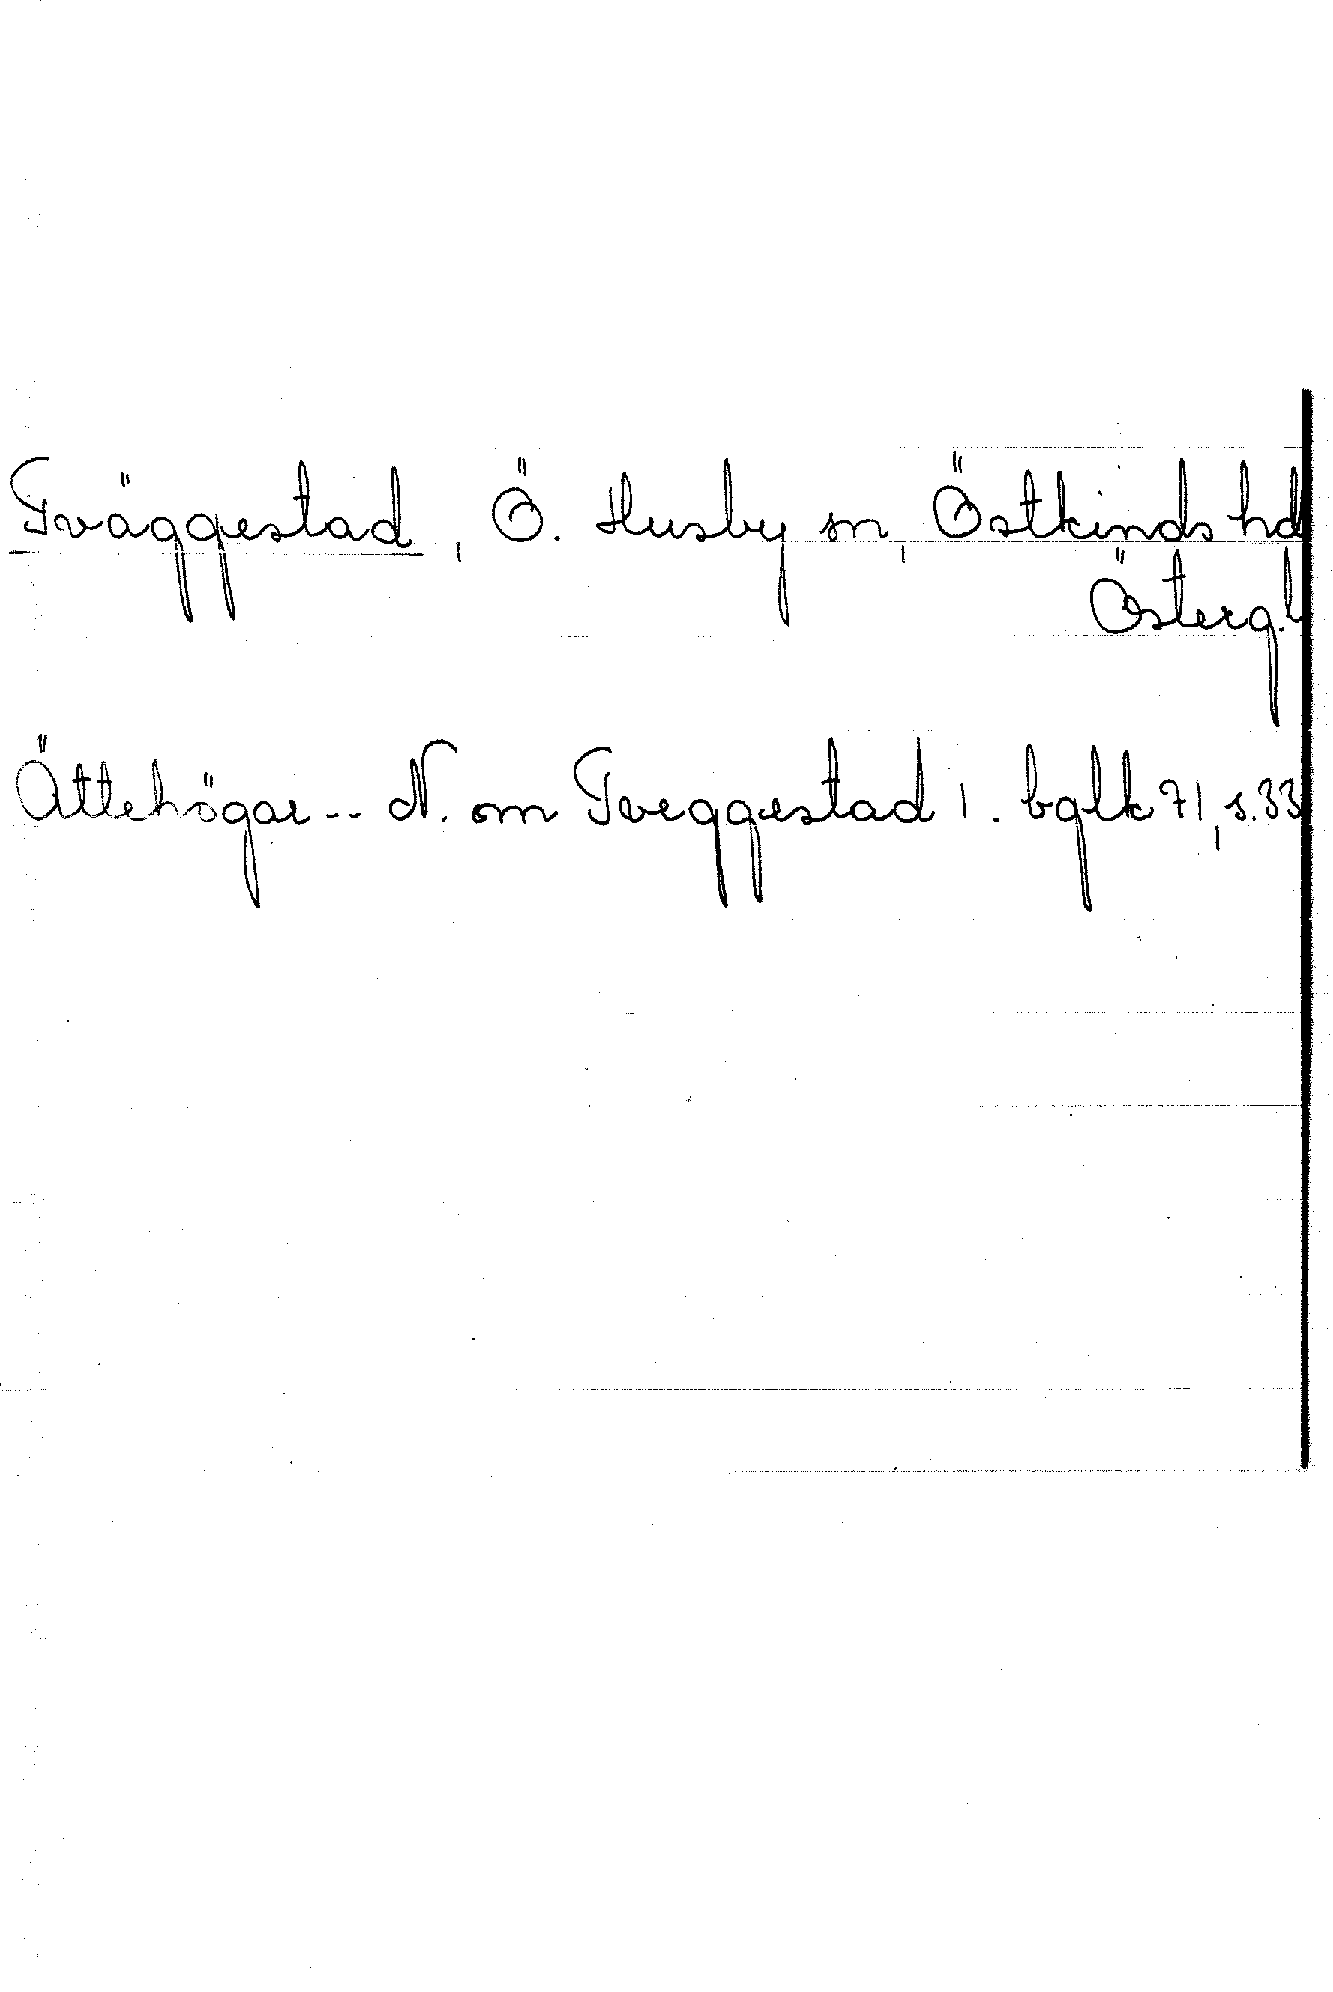 Tväggestad, Ö. Husby sn, Östkinds hd
Österg. l
Ättehögar -- N. om Tveggestad 1. bglk 71, s. 33